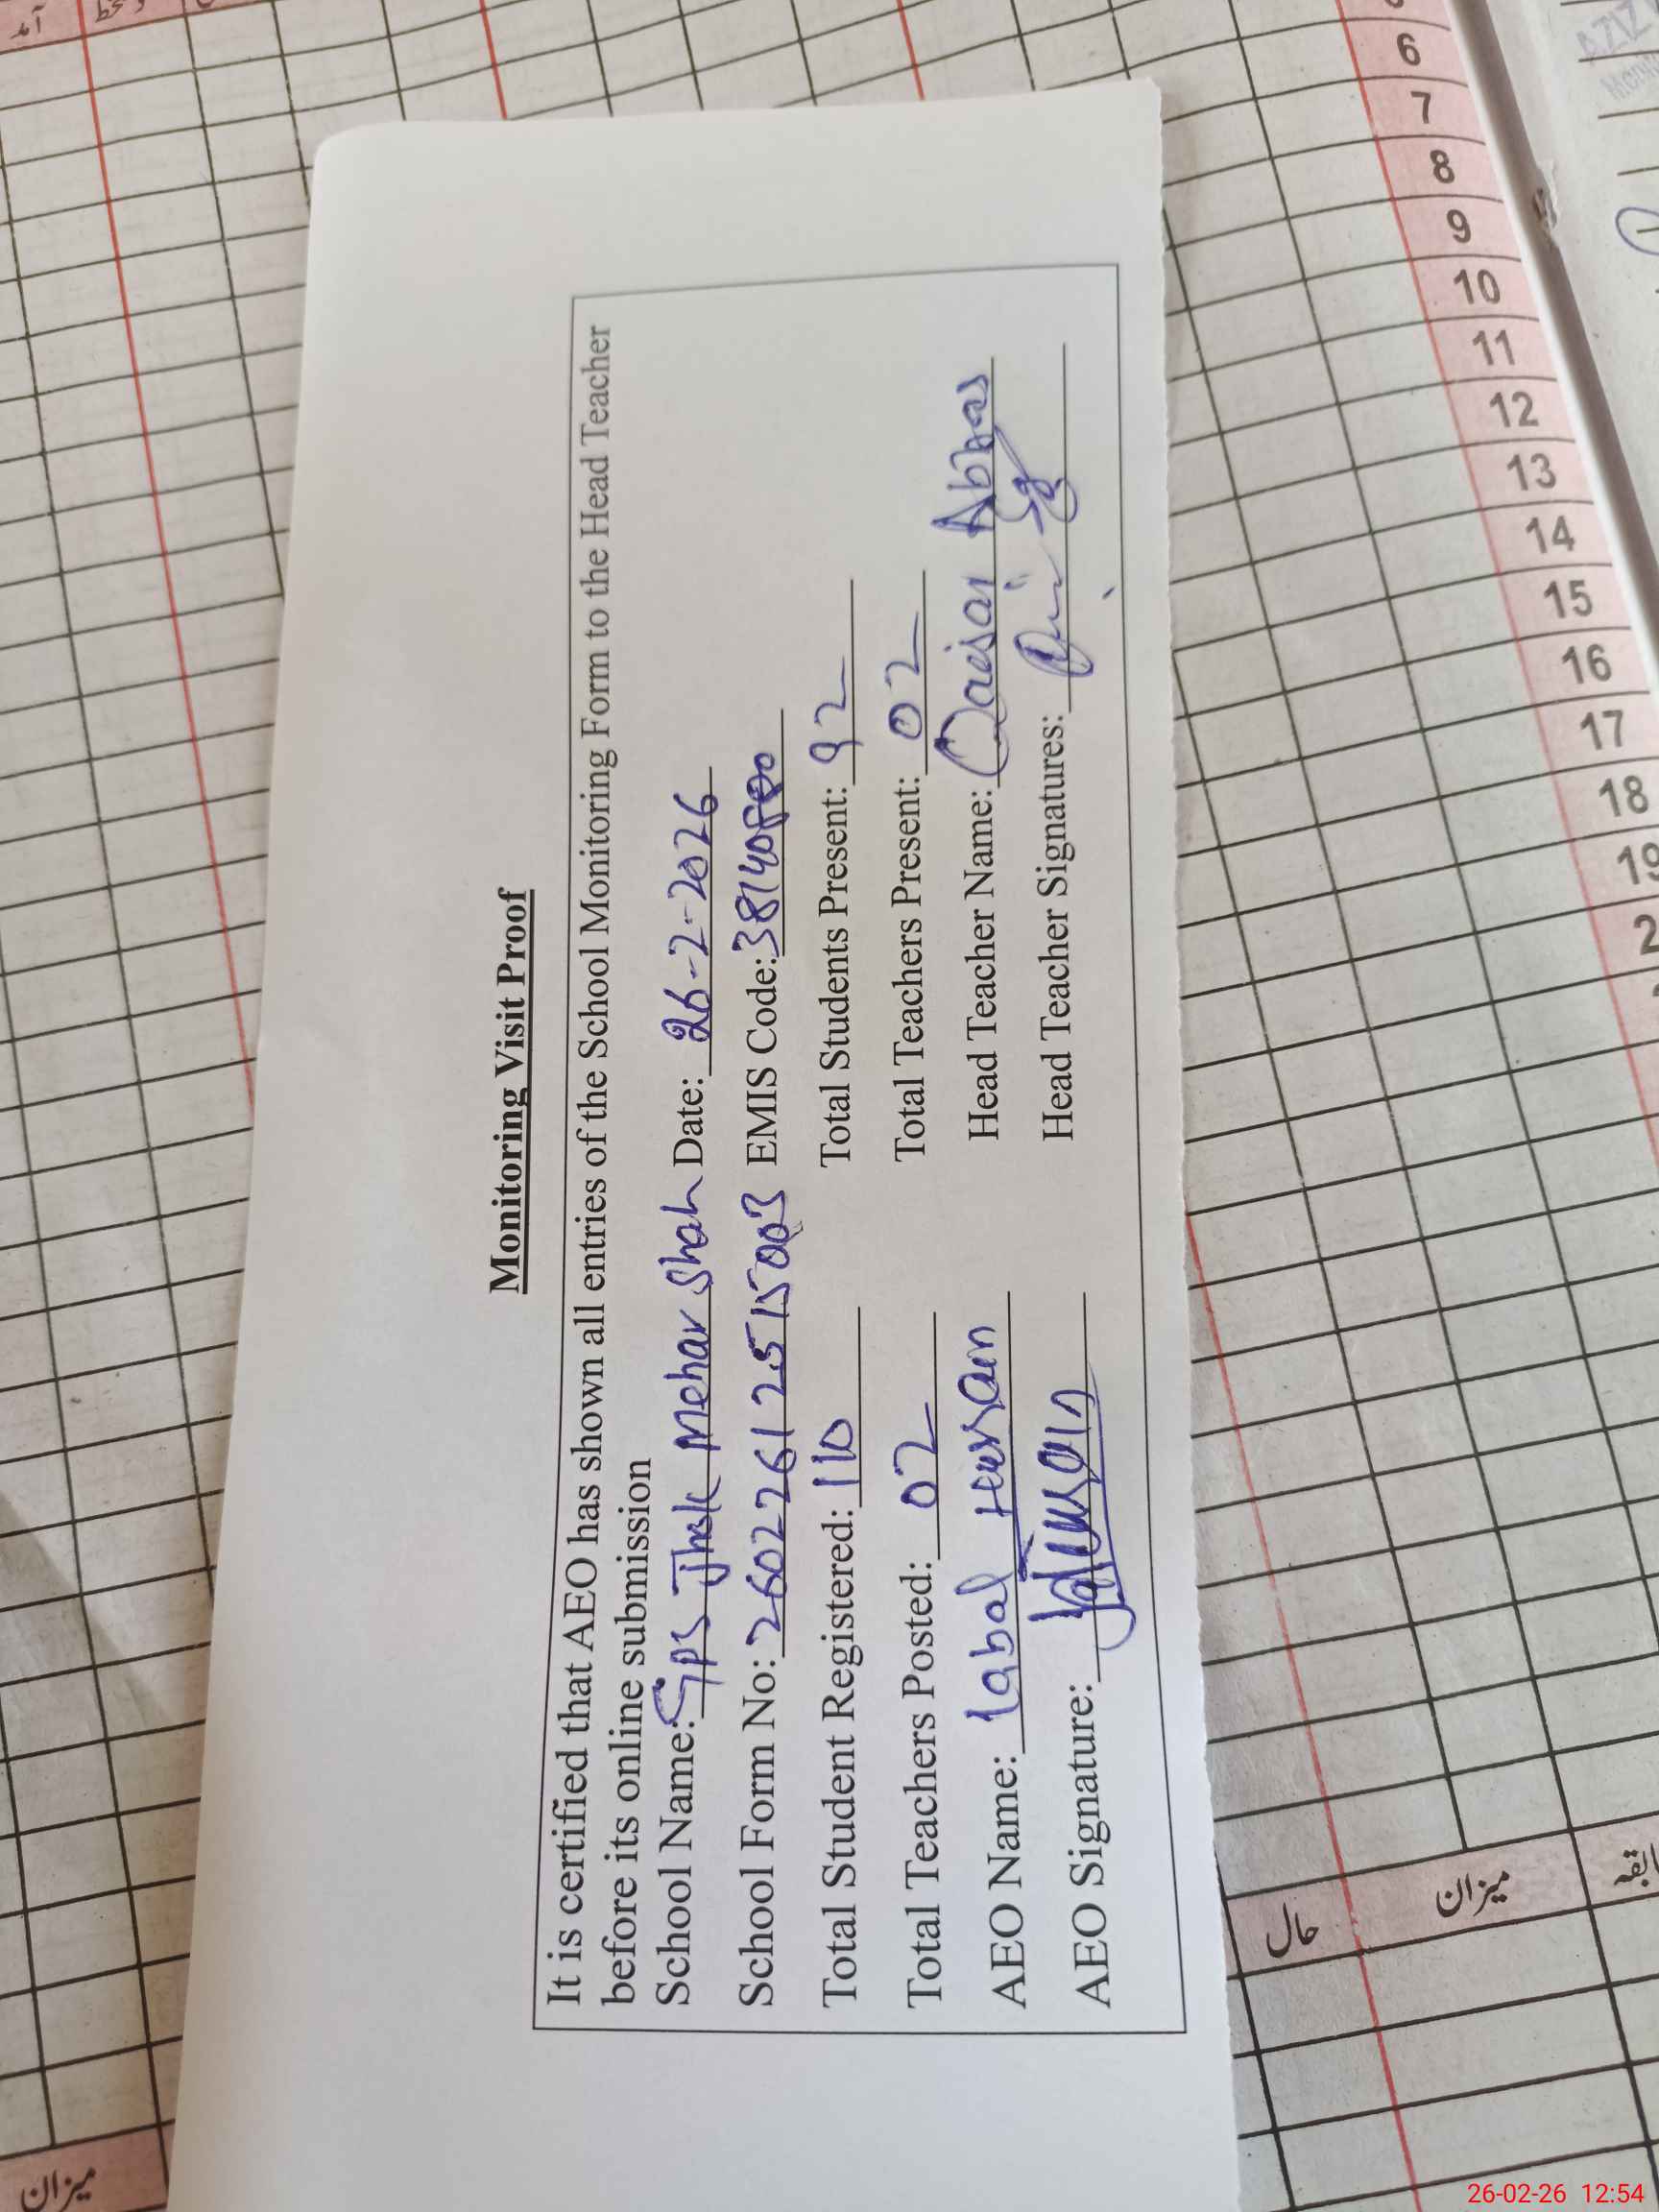 Monitoring Visit Proof
It is certified that AEO has shown all entries of the School Monitoring Form to the Head Teacher
before its online submission
School Name: GPS Jhok Mehar Shah Date: 26-2-2026
School Form No: 26022612515003 EMIS Code:
Total Student Registered: 110 Total Students Present: 92
Total Teachers Posted: 02 Total Teachers Present: 02
AEO Name: Iqbal Hussain Head Teacher Name: Qaisar Abbas
AEO Signature: Head Teacher Signatures:
6
7
8
9
10
11
12
13
14
15
16
17
18
19
2
حال
میزان
میزان
26-02-26 12:54